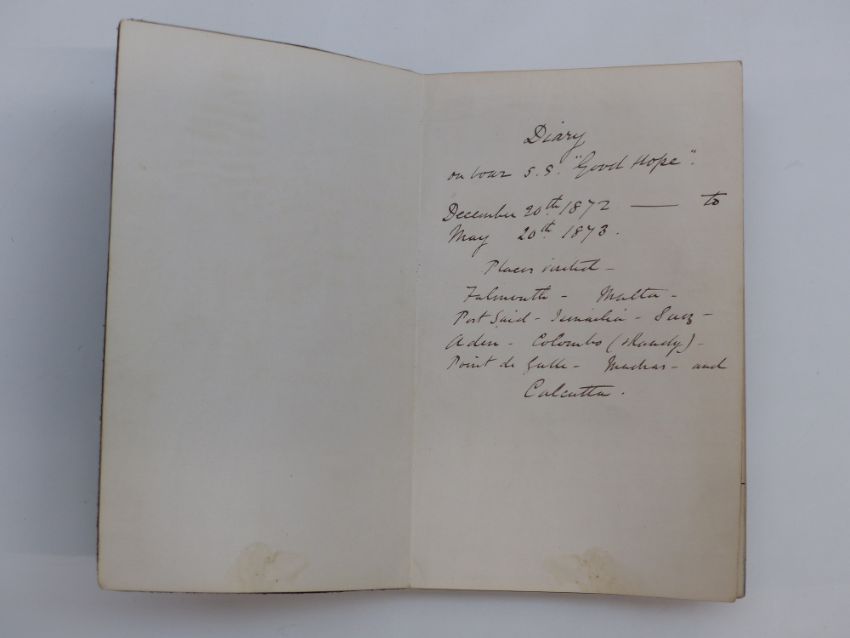 Diary
on boar S.S. "Good Hope".
December 20th 1872 — to
May 20th 1873.
Places visited –
Falmouth – Malta –
Port Said – Ismailia – Suez –
Aden – Colombo (Kandy) –
Point de Galle – Madras – and
Calcutta.